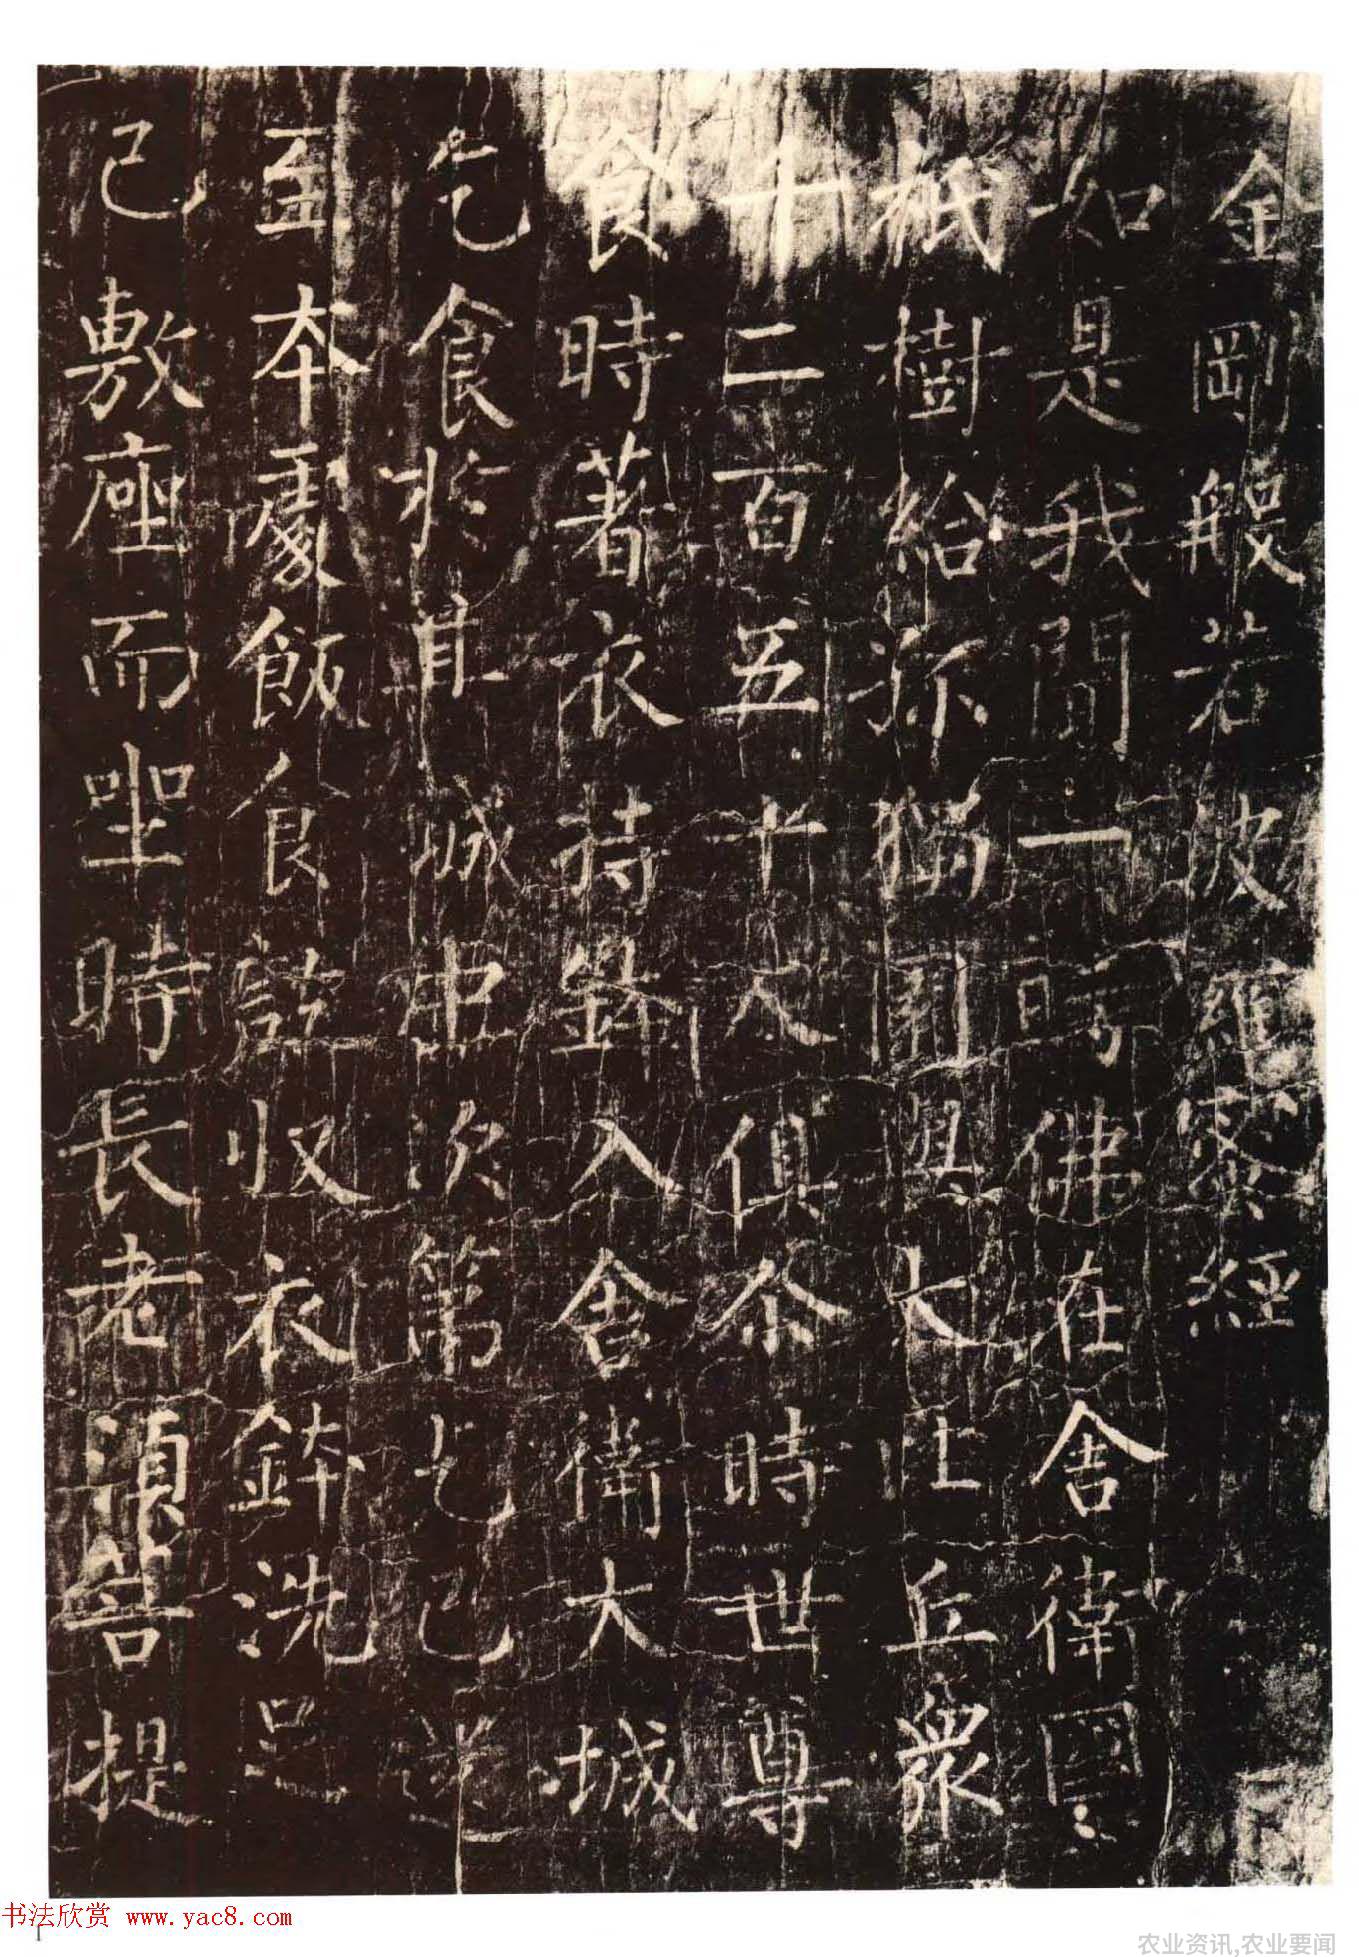 金剛般若波羅蜜經
如是我聞一時佛在舍衛國
祇樹給孤獨園與大比丘衆
千二百五十人俱尒時世尊
食時著衣持鉢入舍衛大城
乞食於其城中次第乞已還
至本處飯食訖收衣鉢洗足
已敷座而坐時長老須菩提
书法欣赏 www.yac8.com
1
农业资讯,农业要闻